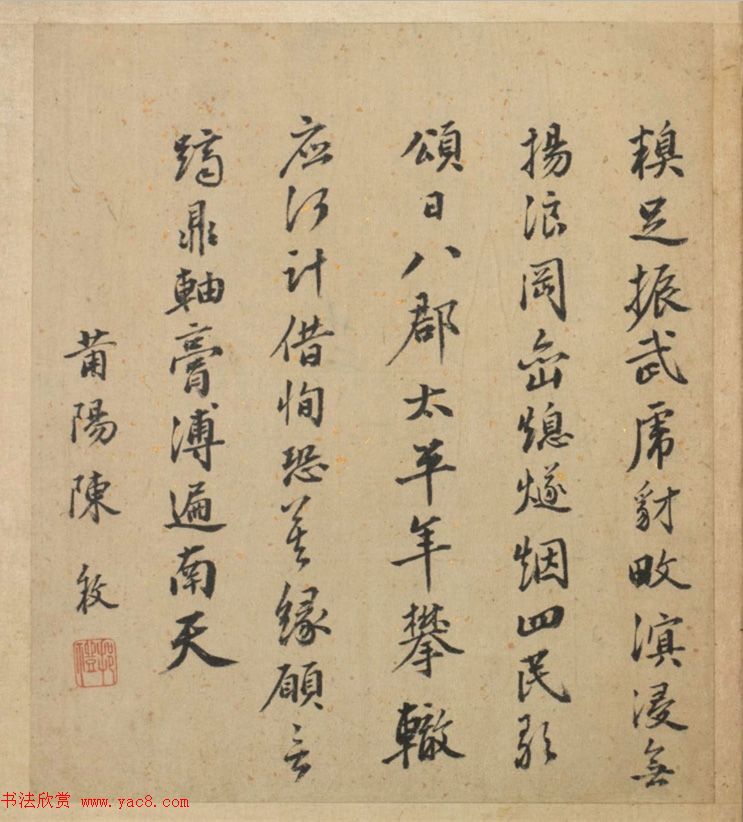 糗足振武虎豺畋溟浸無
揚浪岡巒熄燧烟四民歌
頌日八郡太平年攀轍
應何計借恂恐莫緣願言
調鼎軸膏溥遍南天
莆陽陳
书法欣赏 www.yac8.com